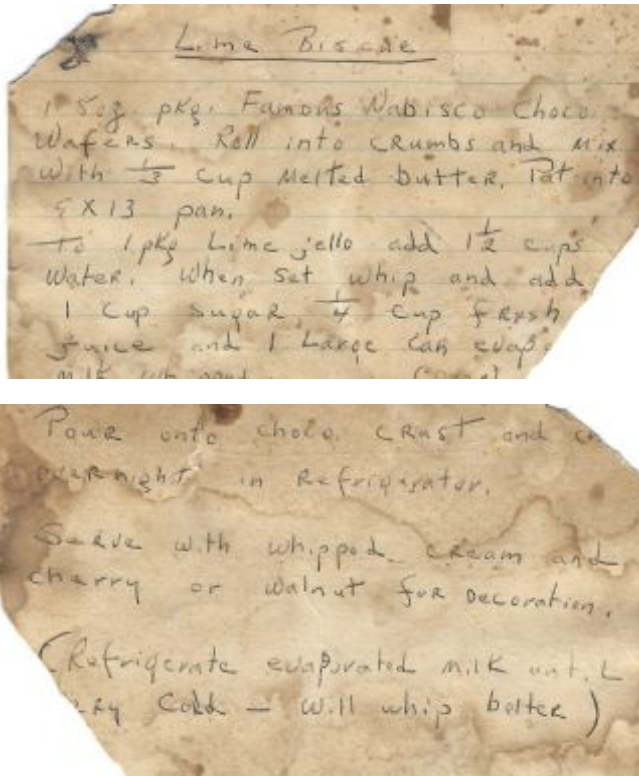 Lime Biscue
1 5oz. pkg. Famous Nabisco Choco.
Wafers. Roll into crumbs and mix
with 1/3 cup melted butter. Pat into
9 X 13 pan.
To 1 pkg Lime jello add 1 1/2 cups
water. When set whip and add
1 cup sugar 1/4 cup fresh
juice and 1 Large can evap
milk whipped
Pour onto choco. crust and ch
overnight in Refrigerator.
Serve with whipped cream and
cherry or walnut for decoration.
(Refrigerate evaporated milk until
very cold – will whip better)